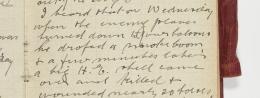 I heard that on Wednesday
when the enemy planes
turned down our balloons
he dropped a smoke bomb
& a few minutes later
a big H.E. shell came
over and killed &
wounded nearly 20 tolos,